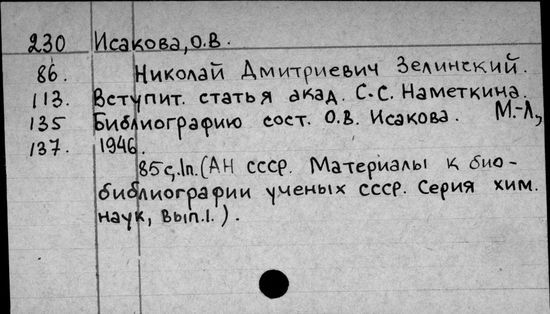 230 Исакова, О.В.
86. Николай Дмитриевич Зелинский.
113. Вступит. статья акад. С.С. Наметкина.
135 Библиографию сост. О.В. Исакова. М.-Л.,
137. 1946.
85с, 1п. (АН СССР. Материалы к био-
библиографии ученых СССР. Серия хим.
наук, вып.1.).